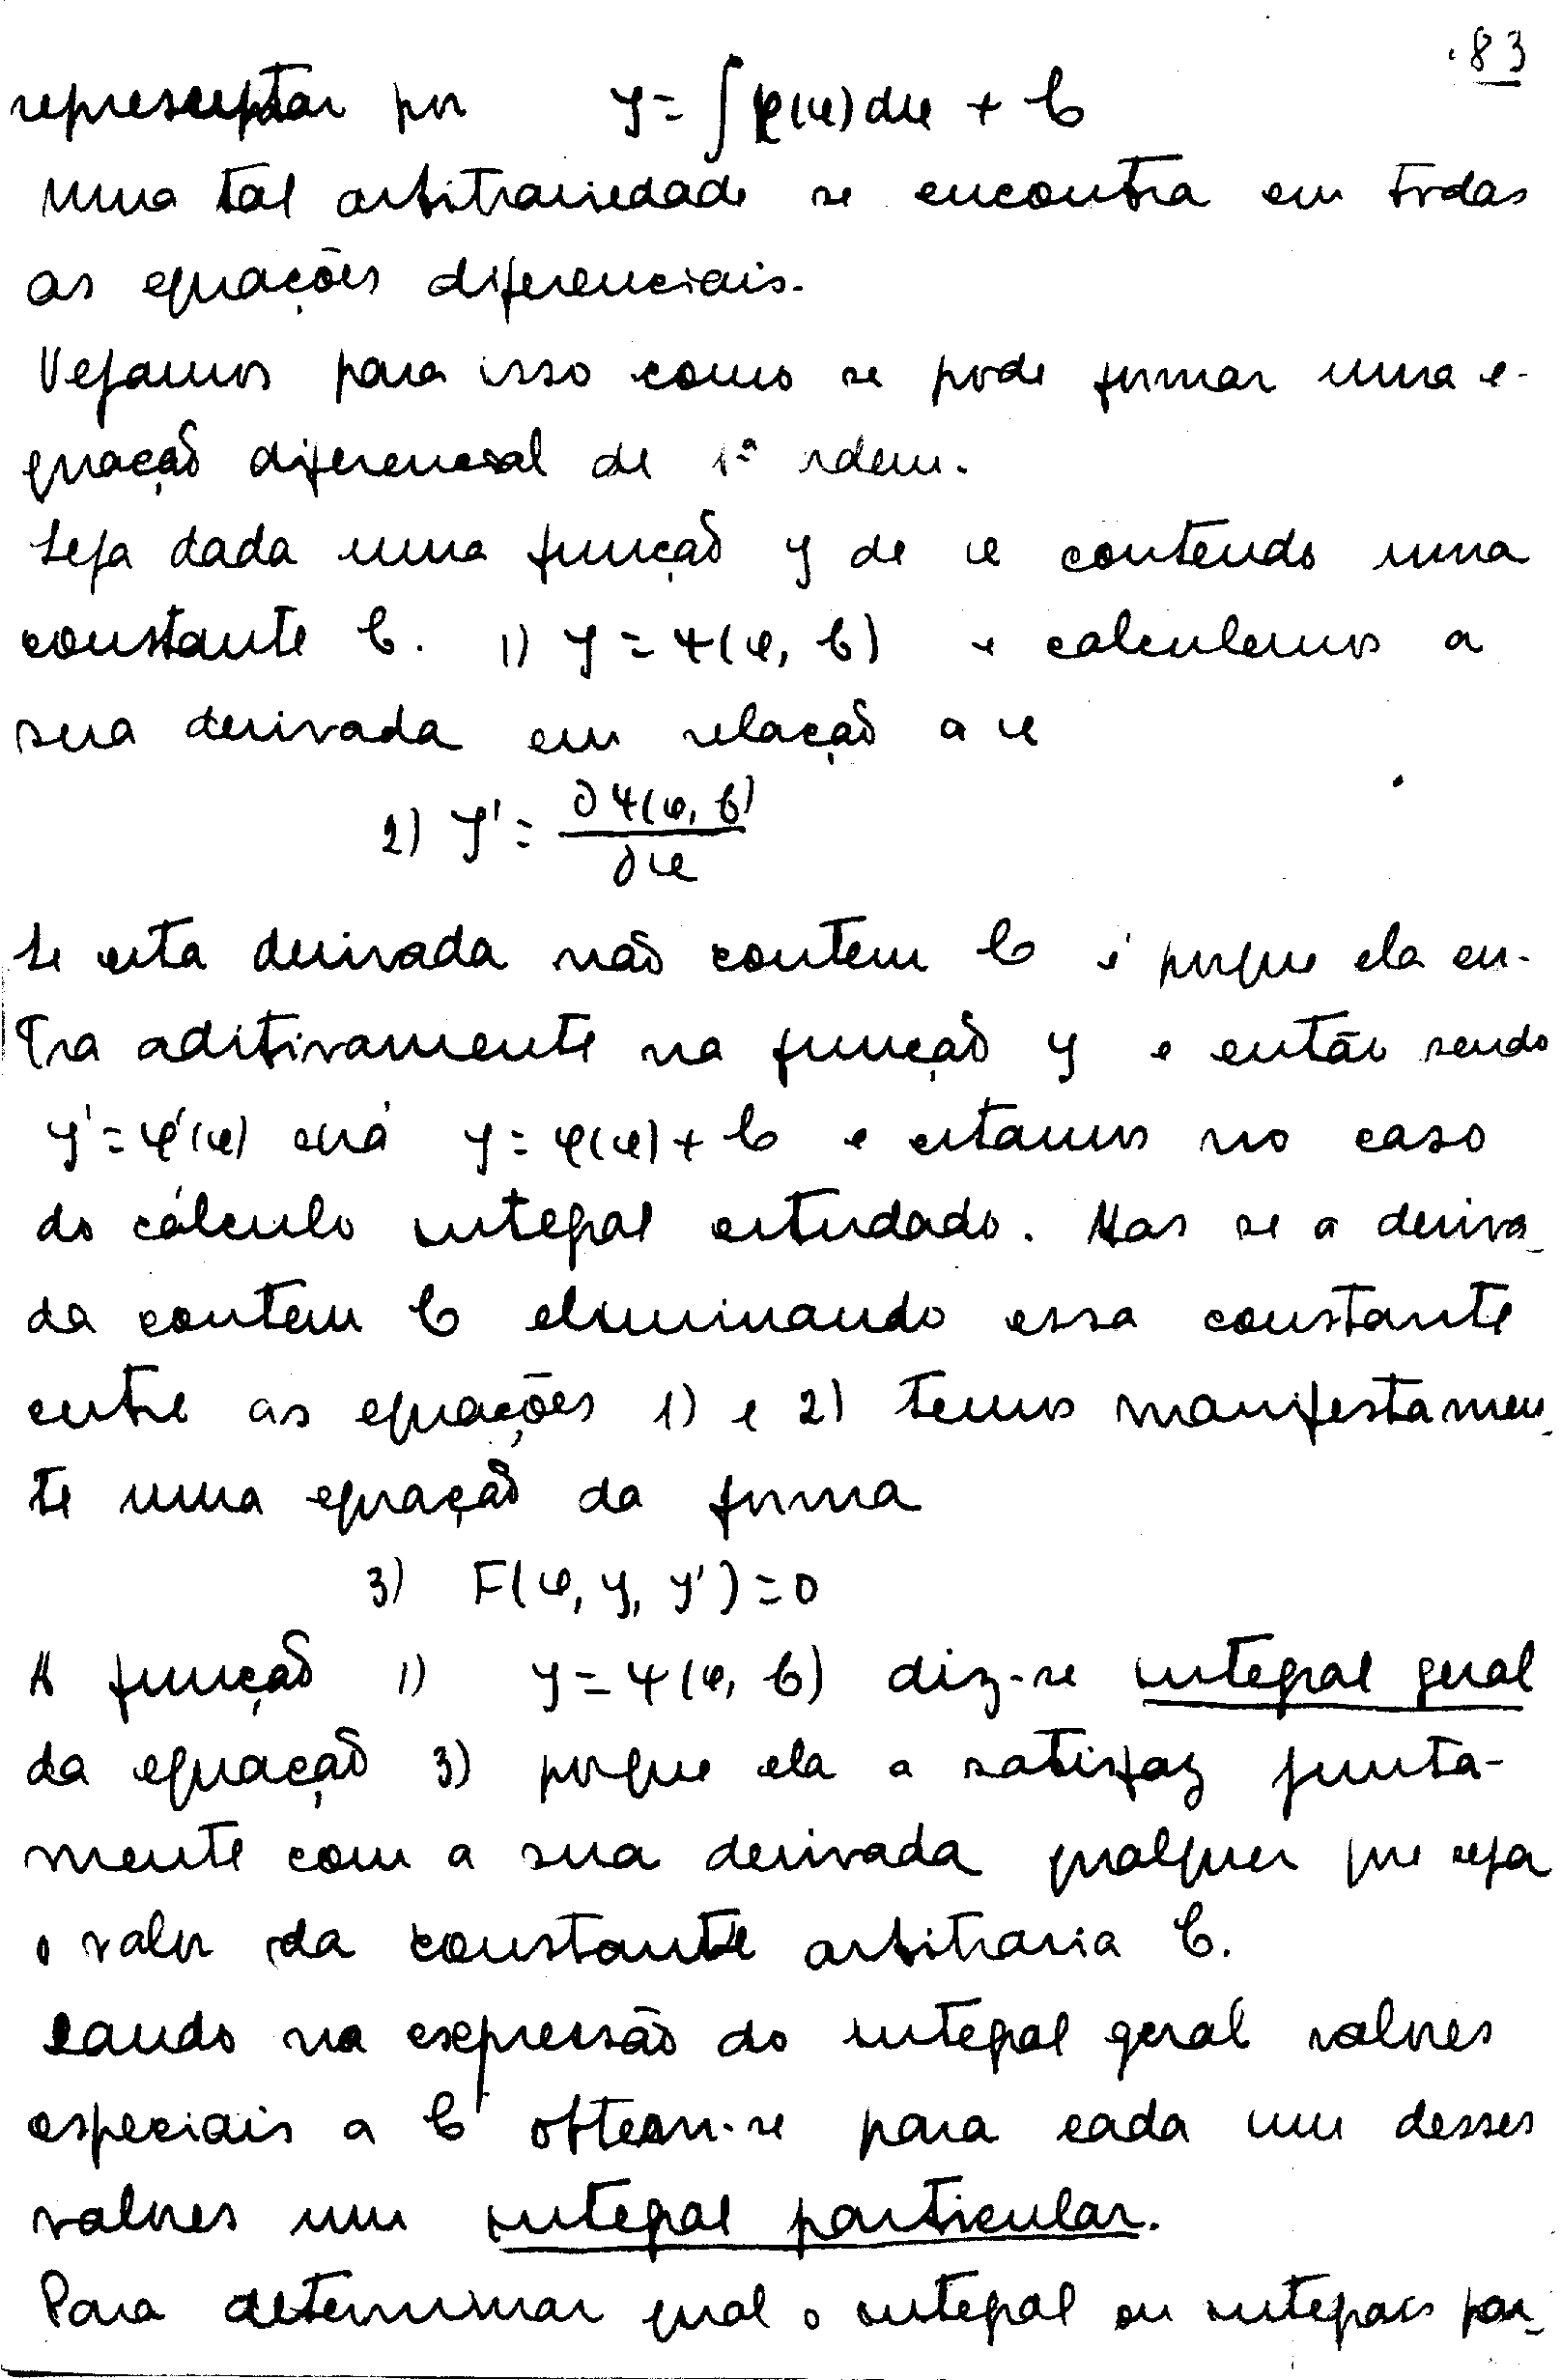 83
representar por y = ∫ φ(x) dx + C
Uma tal arbitrariedade se encontra em todas
as equações diferenciais.
Vejamos para isso como se pode formar uma e-
quação diferencial de 1ª ordem.
Seja dada uma função y de x contendo uma
constante C. 1) y = ψ(x, C) e calculemos a
sua derivada em relação a x
2) y' = ∂ψ(x, C) / ∂x
Se esta derivada não contem C é porque ela en-
tra aditivamente na função y e então sendo
y' = φ'(x) será y = φ(x) + C e estamos no caso
do cálculo integral estudado. Mas se a deriva-
da contem C eliminando essa constante
entre as equações 1) e 2) temos manifestamen-
te uma equação da forma
3) F(x, y, y') = 0
A função 1) y = ψ(x, C) diz-se integral geral
da equação 3) porque ela a satisfaz junta-
mente com a sua derivada qualquer que seja
o valor da constante arbitraria C.
Dando na expressão do integral geral valores
especiais a C obtem-se para cada um desses
valores um integral particular.
Para determinar qual o integral ou integrais par-